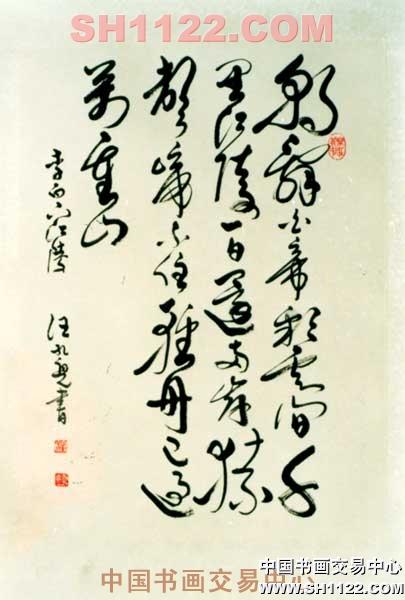 SH1122.COM
朝辭白帝彩雲間千
里江陵一日還兩岸猿
聲啼不住輕舟已過
萬重山
李白下江陵
汪 書
中国书画交易中心
中国书画交易中心
www.SH1122.COM